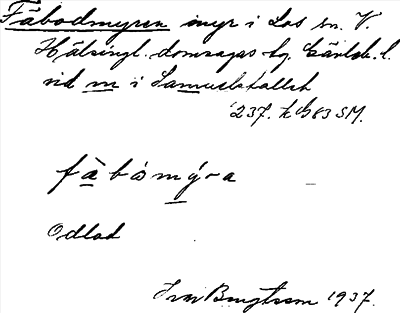 Fäbodmyren myr i Los sn. V.
Hälsingl. domsagas tg. Gävleb. l.
vid m i Samuelsfallet
237. k 583 SM.
fàbòmýra
Odlad
Ivar Bengtsson 1937.